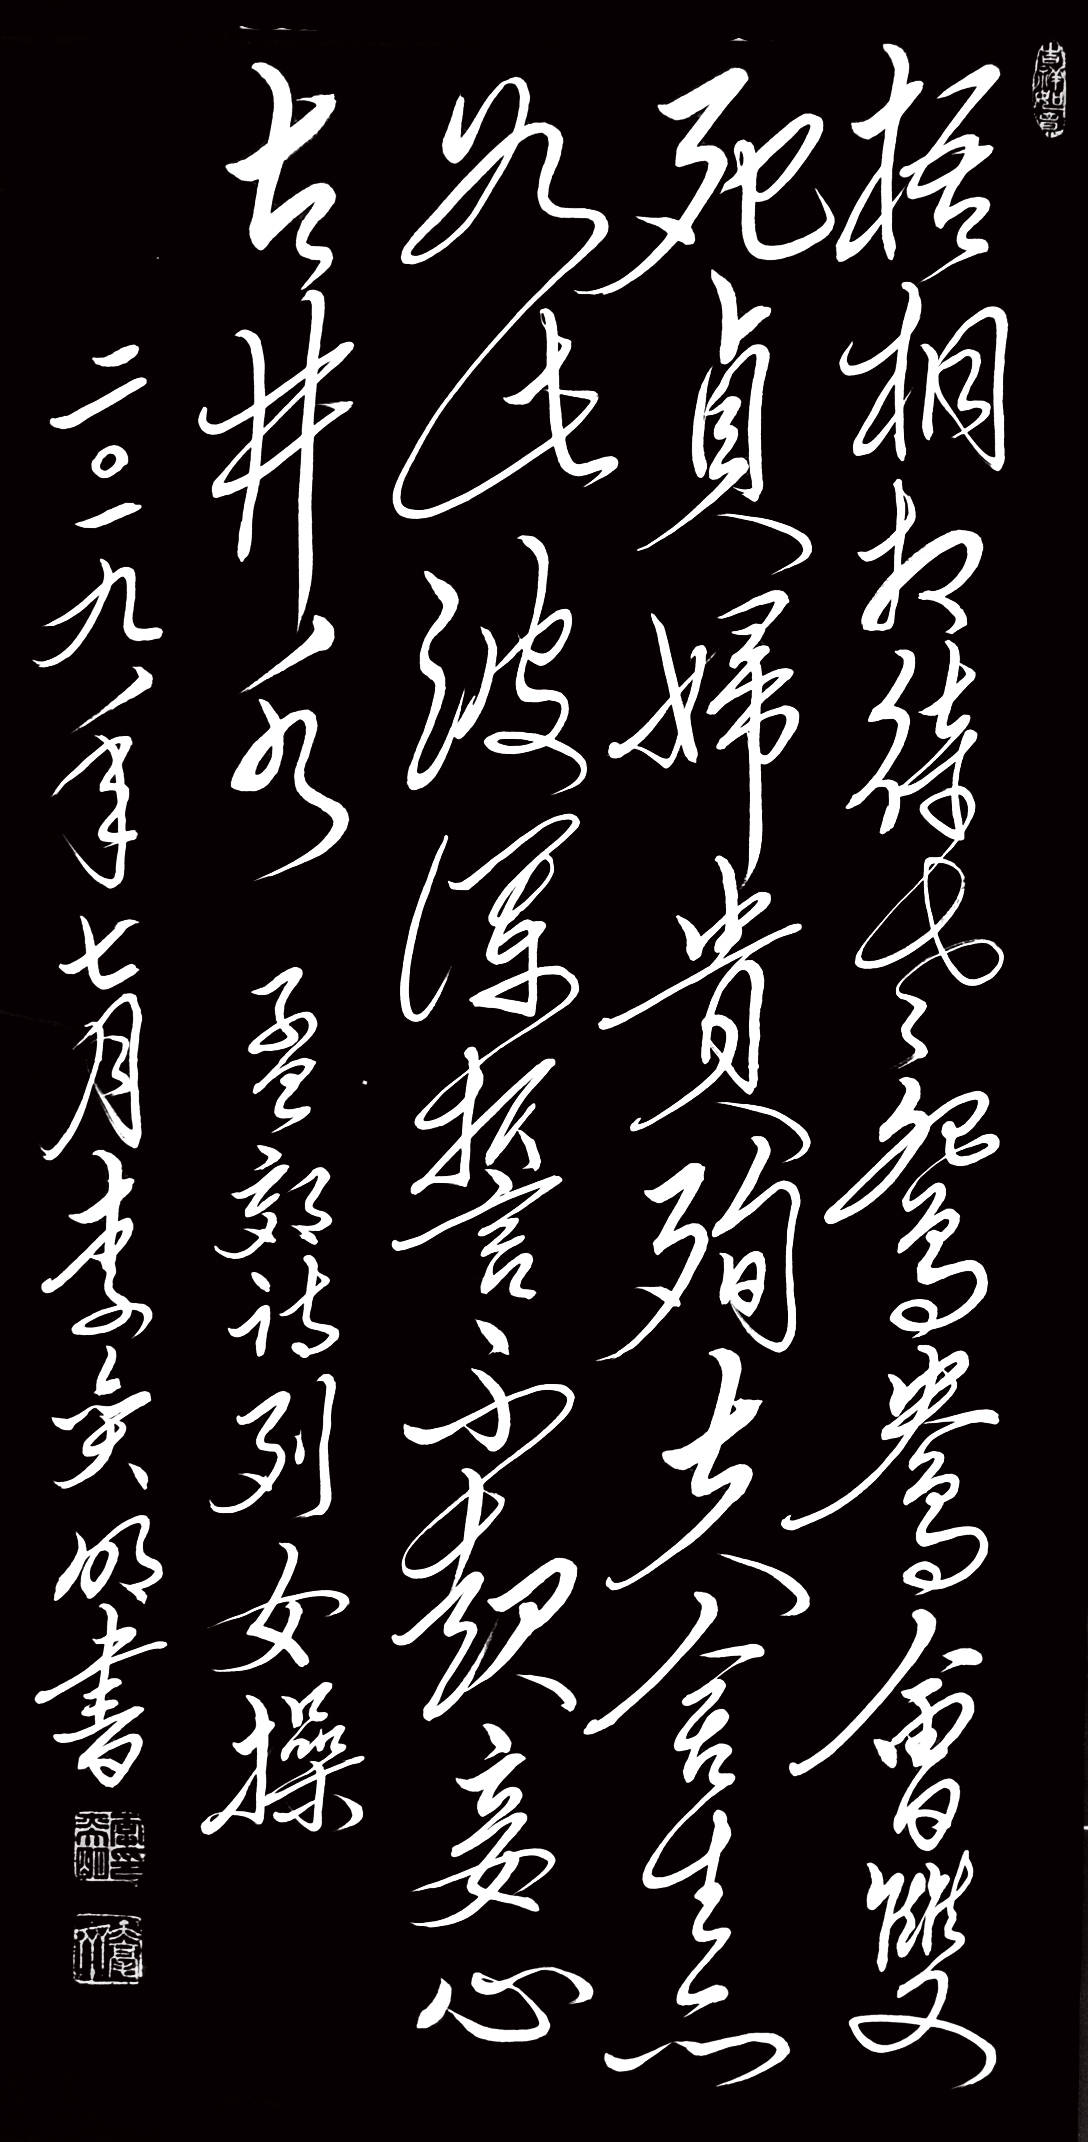 吉祥如意
梧桐相待老鴛鴦會雙
死貞婦貴殉夫舍生亦
如此波瀾誓不起妾心
古井水 孟郊詩列女操
二〇一九年七月李明書